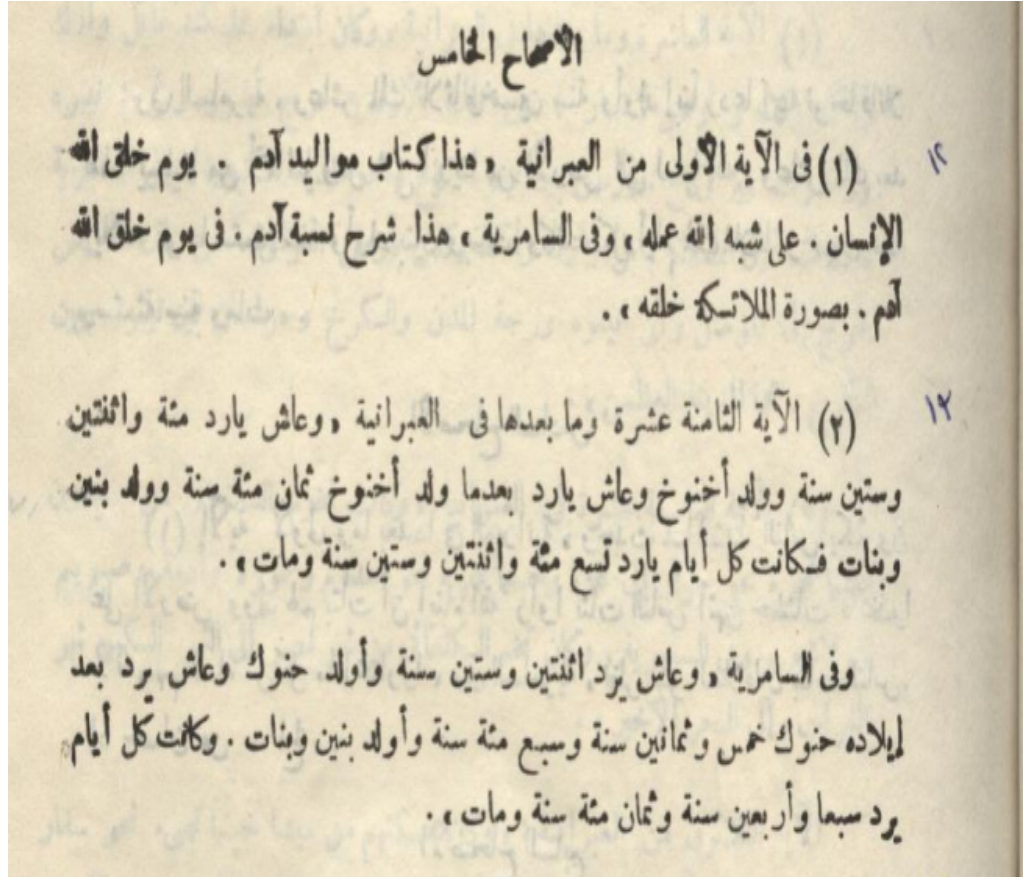 الأصحاح الخامس
(١) فى الآية الأولى من العبرانية « هذا كتاب مواليد آدم . يوم خلق الله
الإنسان . على شبه الله عمله » وفى السامرية « هذا شرح نسبة آدم . فى يوم خلق الله
آدم . بصورة الملائكة خلقه » .
١٢
(٢) الآية الثامنة عشرة وما بعدها فى العبرانية « وعاش يارد مئة واثنتين
وستين سنة وولد أخنوخ وعاش يارد بعدما ولد أخنوخ ثمان مئة سنة وولد بنين
وبنات فكانت كل أيام يارد تسع مئة واثنتين وستين سنة ومات » .
١٣
وفى السامرية « وعاش يرد اثنتين وستين سنة وأولد حنوك وعاش يرد بعد
إيلاده حنوك خمس وثمانين سنة وسبع مئة سنة وأولد بنين وبنات . وكانت كل أيام
يرد سبعا وأربعين سنة وثمان مئة سنة ومات » .